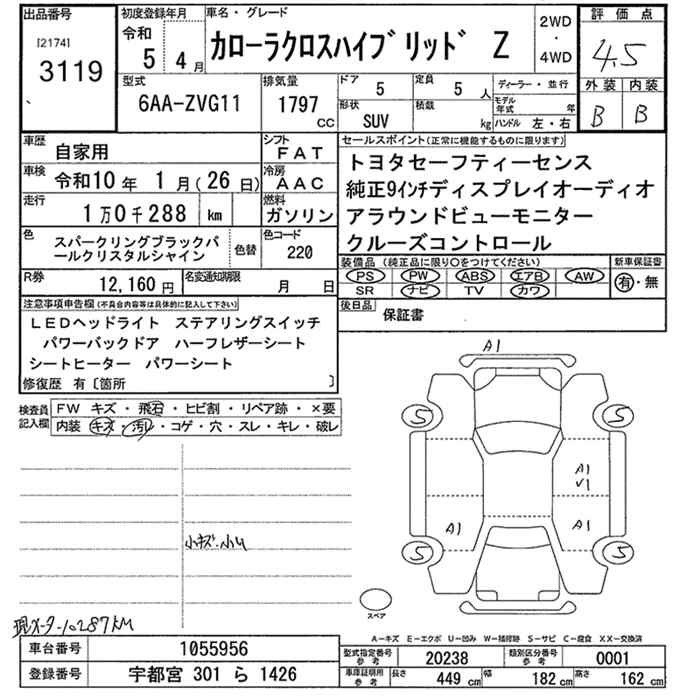 出品番号
[2174]
3119
初度登録年月
令和
5 4月
車名・グレード
カローラクロスハイブリッド Z
2WD
・
4WD
評価点
4.5
外装 内装
B B
型式
6AA-ZVG11
排気量
1797
CC
ドア
5
定員
5 人
形状
SUV
積載
kg
ディーラー・並行
モデル年式 年
ハンドル 左・右
車歴
自家用
シフト
FAT
車検
令和10年 1月(26日)
冷房
AAC
走行
1万0千288 km
燃料
ガソリン
色
スパークリングブラックパ
ールクリスタルシャイン
色替
色コード
220
R券
12,160円
名変通知期限
月 日
セールスポイント(正常に機能するものに限ります)
トヨタセーフティーセンス
純正9インチディスプレイオーディオ
アラウンドビューモニター
クルーズコントロール
装備品(純正品に限り○をつけてください)
PS PW ABS エアB AW
SR ナビ TV カワ
新車保証書
有・無
後日品
保証書
注意事項申告欄(不具合内容等は具体的に記入して下さい)
LEDヘッドライト ステアリングスイッチ
パワーバックドア ハーフレザーシート
シートヒーター パワーシート
修復歴 有〔箇所 〕
検査員
記入欄
FW キズ・飛石・ヒビ割・リペア跡・×要
内装 キズ・汚レ・コゲ・穴・スレ・キレ・破レ
A1
5 5
A1
V1
A1 A1
5 5
スペア
小キズ・小凹
現メーター10287KM
A-キズ E-エクボ U-凹み W-補修跡 S-サビ C-腐食 XX-交換済
車台番号
1055956
登録番号
宇都宮 301 ら 1426
型式指定番号
参考
20238
類別区分番号
参考
0001
車庫証明用
参考
長さ
449 cm
幅
182 cm
高さ
162 cm